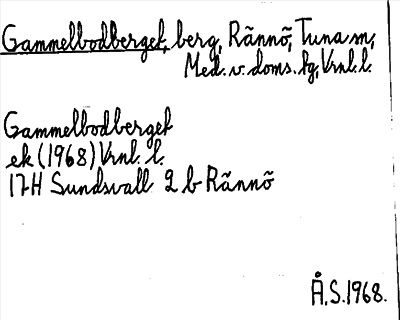 Gammelbodberget, berg, Rännö, Tuna sn,
Med. v. doms. fg, Vrnl. l.
Gammelbodberget
ek (1968) Vrnl. l.
17H Sundsvall 2 b Rännö
Å.S. 1968.